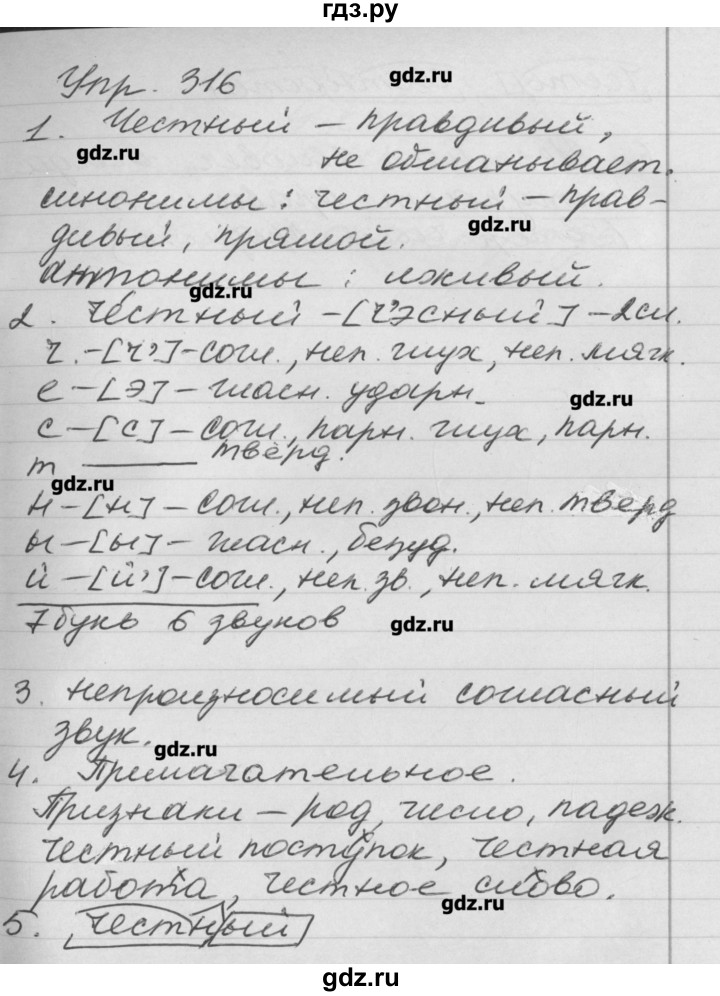 гдз.ру
Упр. 316
gdz.ru
1. Честный – правдивый,
gdz.ru
не обманывает.
синонимы: честный – прав-
gdz.ru
дивый, прямой.
антонимы: лживый.
gdz.ru
2. Честный – [ч'эсный'] – 2сл.
ч. – [ч'] – согл., неп. глух, неп. мягк.
е – [э] – гласн. ударн.
gdz.ru
с – [с] – согл., парн. глух, парн.
т ——— твёрд.
gdz.ru
н – [н] – согл., неп. звон., неп. тверд
ы – [ы] – гласн., безуд.
й – [й'] – согл., неп. зв., неп. мягк.
7 букв 6 звуков
gdz.ru
3. Непроизносимый согласный
звук.
gdz.ru
4. Прилагательное.
Признаки – род, число, падеж.
честный поступок, честная
работа, честное слово.
gdz.ru
5. честный
gdz.ru